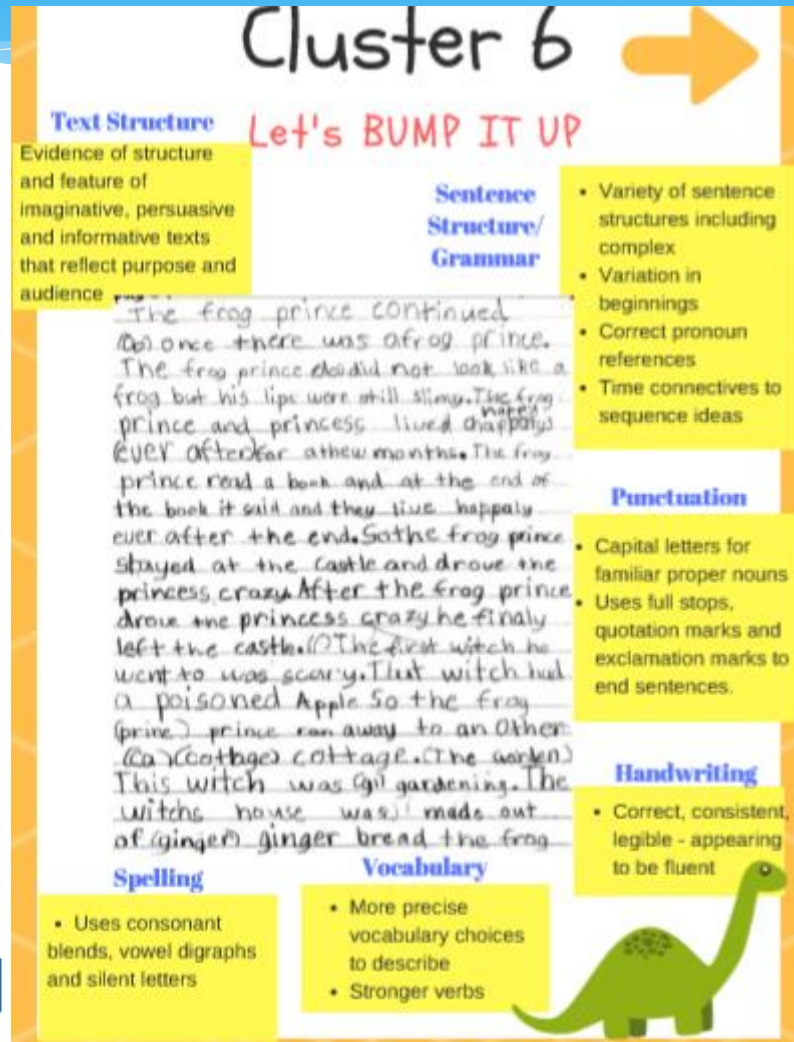 Cluster 6
Let's BUMP IT UP
Text Structure
Evidence of structure
and feature of
imaginative, persuasive
and informative texts
that reflect purpose and
audience
Sentence
Structure/
Grammar
• Variety of sentence
structures including
complex
• Variation in
beginnings
• Correct pronoun
references
• Time connectives to
sequence ideas
The frog prince continued
once there was afrog prince.
The frog prince did not look like a
frog but his lips were still slimy. The frog
prince and princess lived happaly
ever after for athew months. The frog
prince read a book and at the end of
the book it said and they live happaly
ever after the end. So the frog prince
stayed at the castle and drove the
princess crazy. After the frog prince
drove the princess crazy he finaly
left the castle. The first witch he
went to was scary. That witch had
a poisoned Apple So the frog
(prine) prince ran away to an Other
(ca) (cottage) cottage. (The garden)
This witch was gardening. The
witchs house was made out
of (ginger) ginger bread the frog
Punctuation
• Capital letters for
familiar proper nouns
• Uses full stops,
quotation marks and
exclamation marks to
end sentences.
Handwriting
• Correct, consistent,
legible - appearing
to be fluent
Spelling
• Uses consonant
blends, vowel digraphs
and silent letters
Vocabulary
• More precise
vocabulary choices
to describe
• Stronger verbs